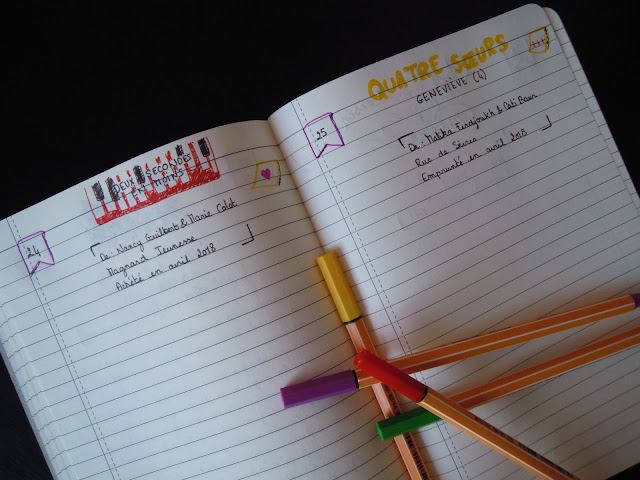 DEUX SECONDES
EN MOINS
24
De: Nancy Guilbert & Marie Colot
Magnard Jeunesse
Acheté en avril 2018
QUATRE SŒURS
GENEVIÈVE (4)
25
De: Malika Ferdjoukh & Cati Baur
Rue de Sèvres
Emprunté en avril 2018